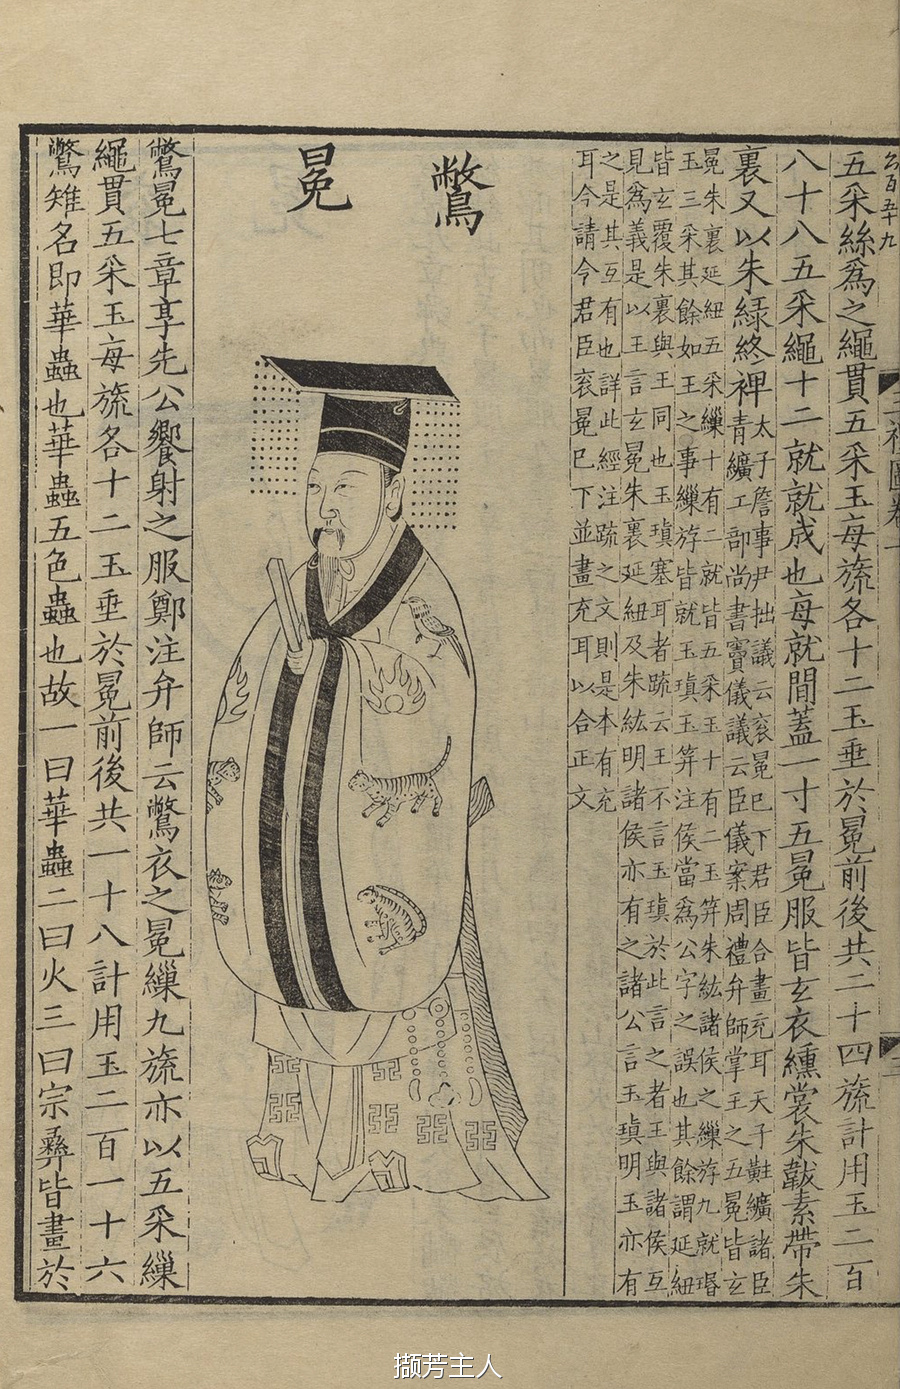 三禮圖卷一
五采絲爲之繩貫五采玉毎旒各十二玉垂於冕前後共二十四旒計用玉二百
八十八五采繩十二就就成也毎就間蓋一寸五冕服皆玄衣纁裳朱韍素帶朱
裏又以朱緑終裨
太子詹事尹拙議云衮冕已下君臣合畫充耳天子黈纊諸臣
青纊工部尚書竇儀議云臣儀案周禮弁師掌王之五冕皆玄
冕朱裏延紐五采繅十有二就皆五采玉十有二玉笄朱紘諸侯之繅斿九就瑉
玉三采其餘如王之事繅斿皆就玉瑱玉笄注侯當爲公字之誤也其餘謂延紐
皆玄覆朱裏與王同也玉瑱塞耳者疏云王不言玉瑱於此言之者王與諸侯互
見爲義是以王言玄冕朱裏延紐及朱紘明諸侯亦有之諸公言玉瑱明王亦有
之是其互有也詳此經注疏之文則是本有充
耳今請令君臣衮冕已下並畫充耳以合正文
鷩冕
鷩冕七章享先公饗射之服鄭注弁師云鷩衣之冕繅九旒亦以五采繅
繩貫五采玉毎旒各十二玉垂於冕前後共一十八計用玉二百一十六
鷩雉名即華蟲也華蟲五色蟲也故一曰華蟲二曰火三曰宗彝皆畫於
撷芳主人